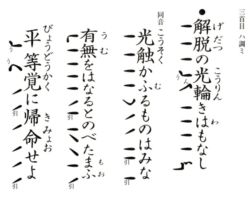 三首目 ハ調ミ
げだつ こうりん
●解脱の光輪きはもなし
う うん
同音
こうそく も
光触かふるものはみな
引 引
うむ もお
有無をはなるとのべたまふ
引 引
びょうどうかく きみょお
平等覚に帰命せよ
う う 引